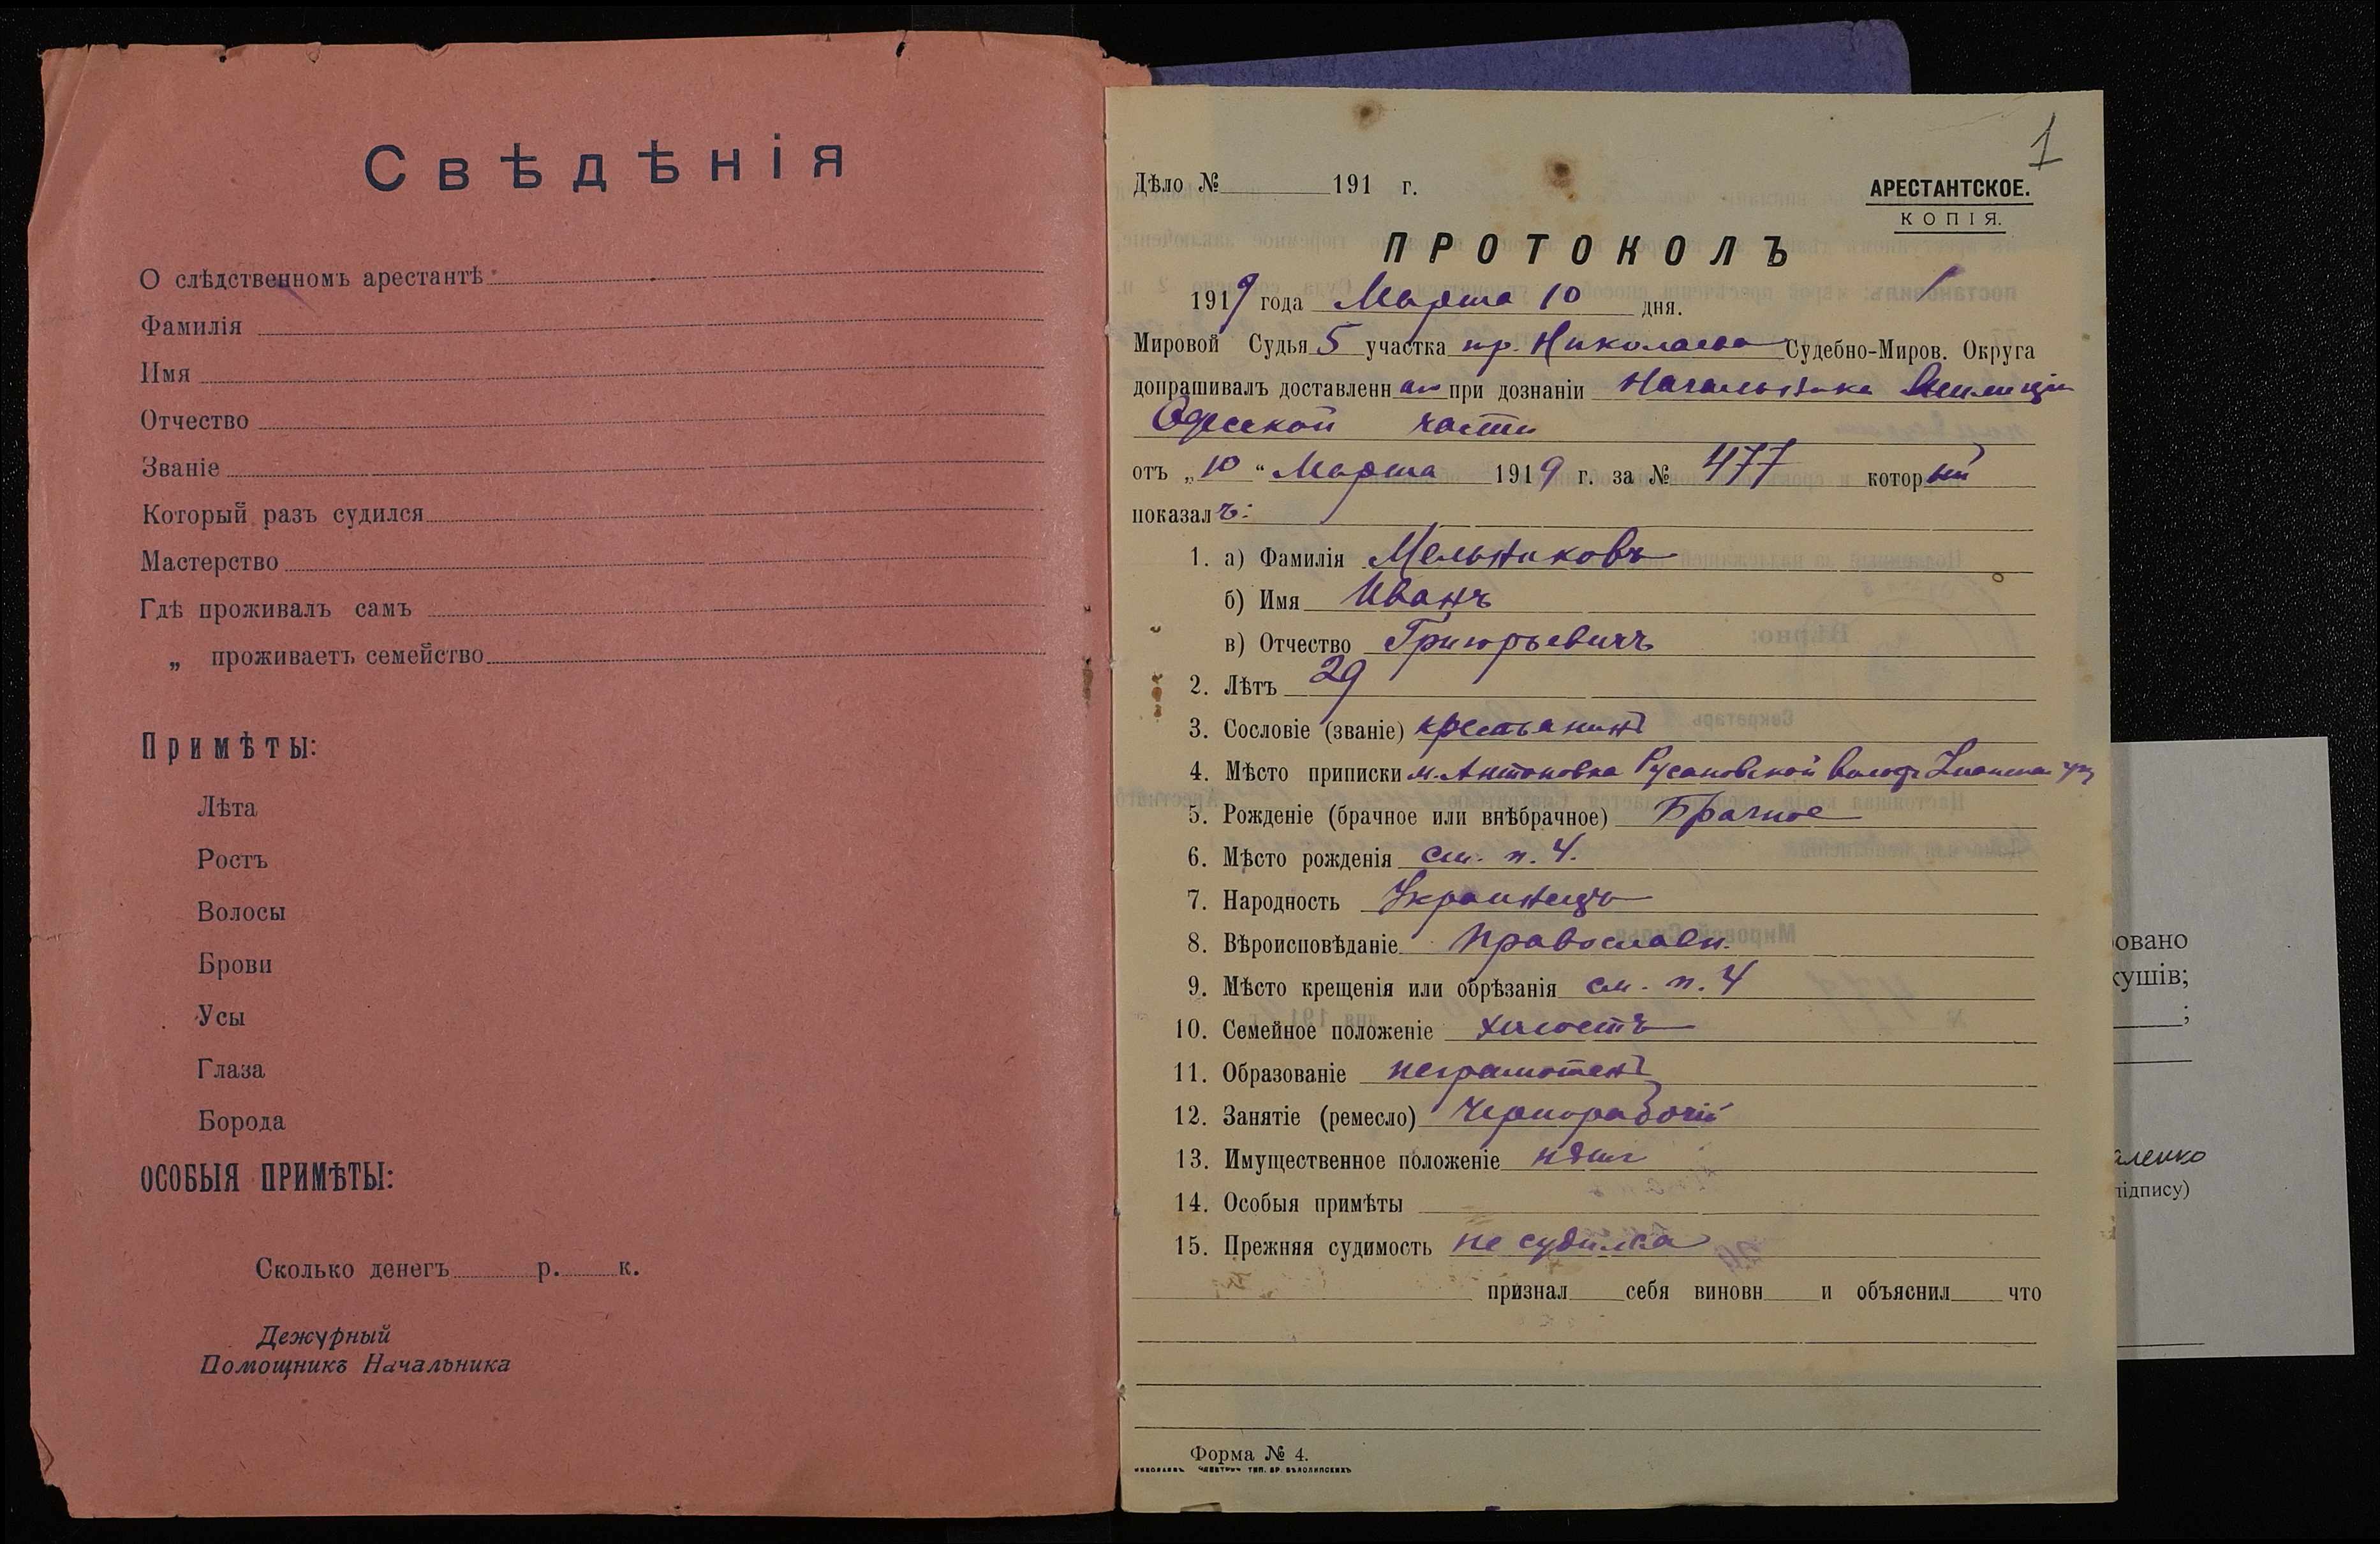 Свѣдѣнія
О слѣдственномъ арестантѣ
Фамилія
Имя
Отчество
Званіе
Который разъ судился
Мастерство
Гдѣ проживалъ самъ
„ проживаетъ семейство
Примѣты:
Лѣта
Ростъ
Волосы
Брови
Усы
Глаза
Борода
ОСОБЫЯ ПРИМѢТЫ:
Сколько денегъ р. к.
Дежурный
Помощникъ Начальника
1
Дѣло № 191 г.
АРЕСТАНТСКОЕ.
КОПІЯ.
ПРОТОКОЛЪ
1919 года Марта 10 дня.
Мировой Судья 5 участка гр. Николаева Судебно-Миров. Округа
допрашивалъ доставленн при дознаніи Начальника Милиціи
Одесской части
отъ „10“ Марта 1919 г. за № 477 который
показалъ:
1. а) Фамилія Мельниковъ
б) Имя Иванъ
в) Отчество Григорьевичъ
2. Лѣтъ 29
3. Сословіе (званіе) крестьянинъ
4. Мѣсто приписки м. Антоновка Русановской волос
5. Рожденіе (брачное или внѣбрачное) Брачное
6. Мѣсто рожденія см. п. 4.
7. Народность Украинецъ
8. Вѣроисповѣданіе Православн.
9. Мѣсто крещенія или обрѣзанія см. п. 4
10. Семейное положеніе холостъ
11. Образованіе неграмотенъ
12. Занятіе (ремесло) Чернорабочій
13. Имущественное положеніе
14. Особыя примѣты
15. Прежняя судимость не судился
признал себя виновн и объяснил что
Форма № 4.
овано
кушів;
;
аленко
підпису)